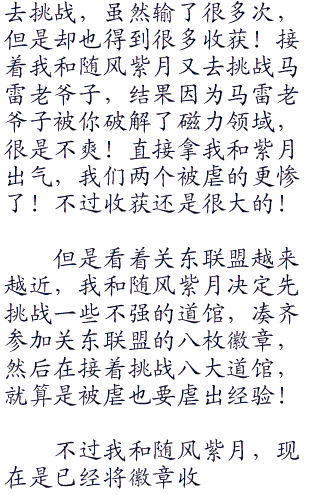 去挑战，虽然输了很多次，
但是却也得到很多收获！接
着我和随风紫月又去挑战马
雷老爷子，结果因为马雷老
爷子被你破解了磁力领域，
很是不爽！直接拿我和紫月
出气，我们两个被虐的更惨
了！不过收获还是很大的！
但是看着关东联盟越来
越近，我和随风紫月决定先
挑战一些不强的道馆，凑齐
参加关东联盟的八枚徽章，
然后在接着挑战八大道馆，
就算是被虐也要虐出经验！
不过我和随风紫月，现
在是已经将徽章收